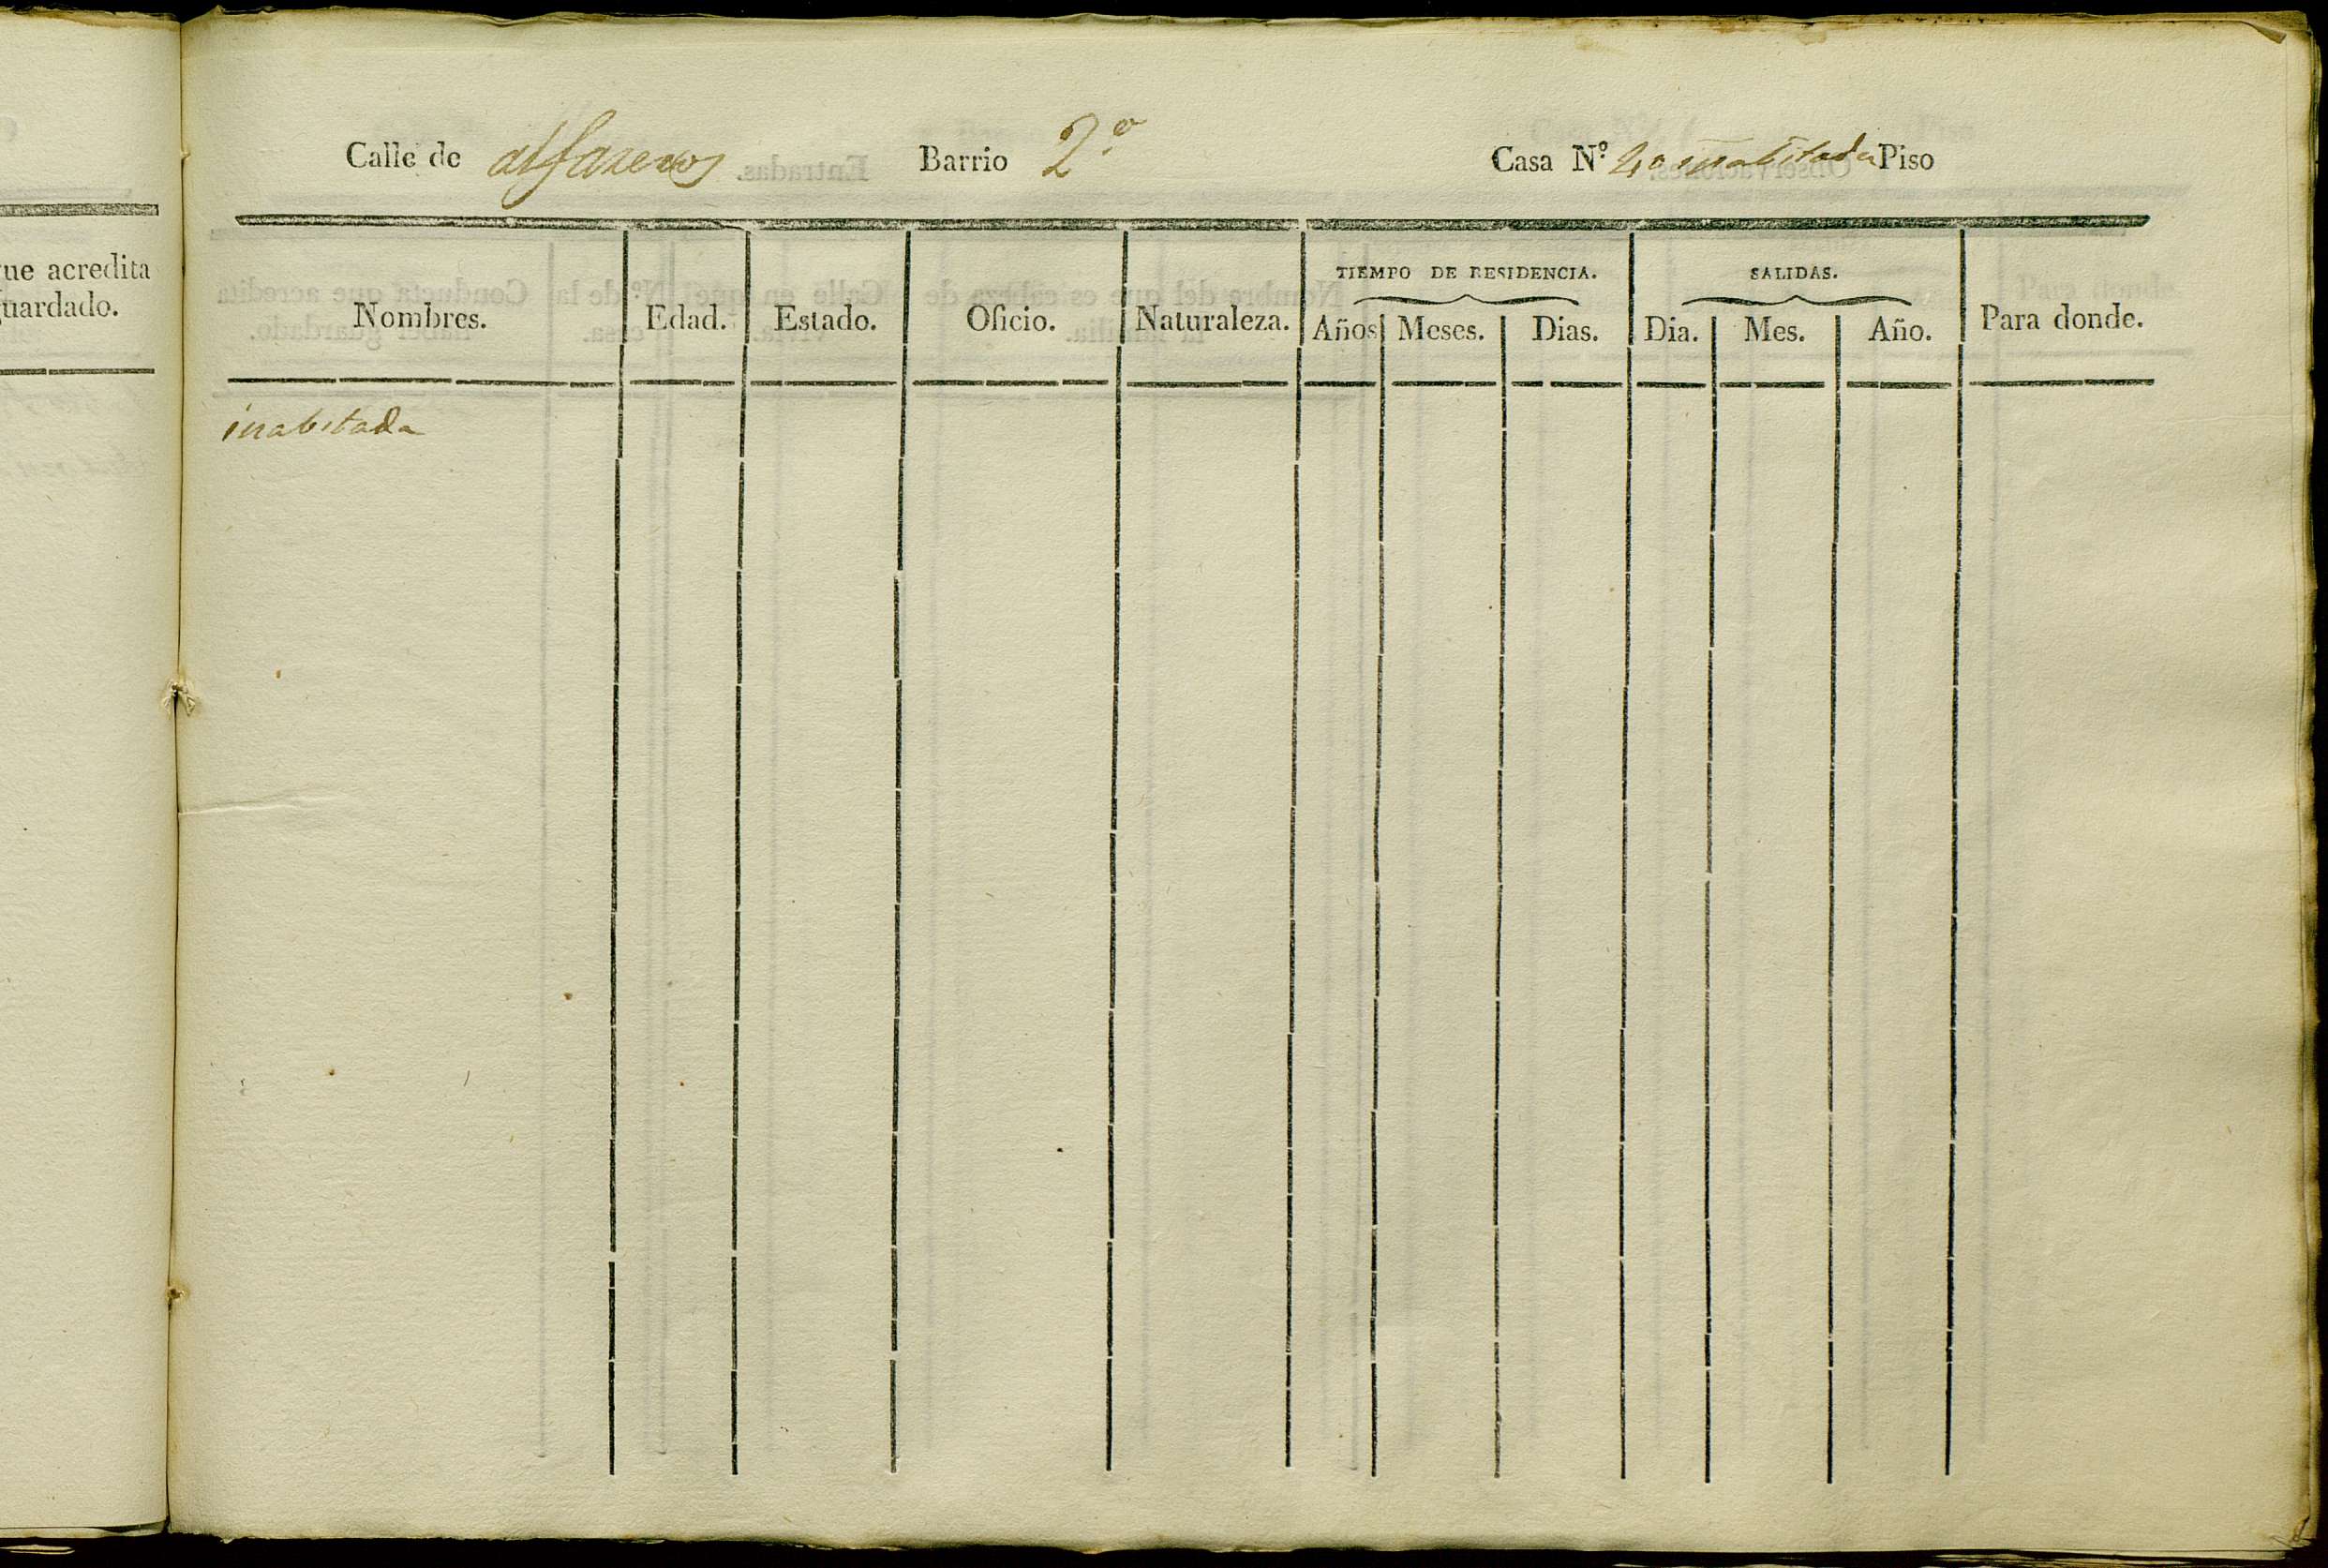 que acredita
guardado.
Calle de alfareros Barrio 2.º Casa N.º inabitada Piso
Nombres. Edad. Estado. Oficio. Naturaleza. TIEMPO DE RESIDENCIA. Años Meses. Dias. SALIDAS. Dia. Mes. Año. Para donde.
inabitada